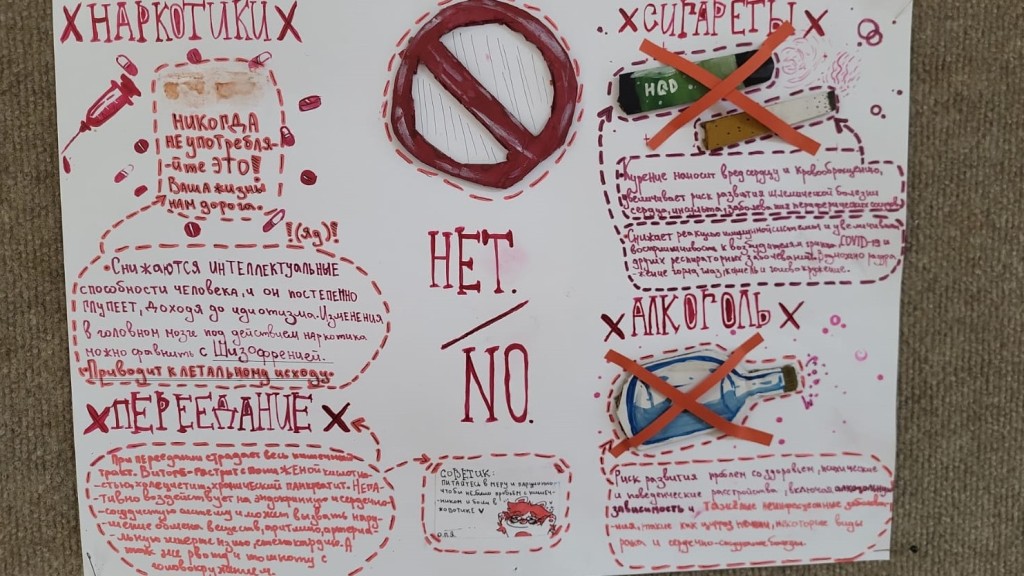 НАРКОТИКИ
НИКОГДА
НЕ употребля-
-йте ЭТО!
Ваша жизнь
нам дорога.
!(Яд)!
•Снижаются интеллектуальные
способности человека, и он постепенно
глупеет, доходя до идиотизма. Изменения
в головном мозге под действием наркотика
можно сравнить с Шизофренией.
•Приводит к летальному исходу
ПЕРЕЕДАНИЕ
При переедании страдает весь
тракт.
хронический панкреатит. Нега-
тивно воздействует на эндокринную и сердечно-
сосудистую систему и может вызвать нару-
шение обмена веществ, аритмию, артериа-
льную гипертензию, стенокардию. А
так же рвота и тошноту с
головокружением.
НЕТ.
/
NO.
СОВЕТИК:
питайтесь в меру и
чтобы не было проблем с кишеч-
ником и боли в
животике!
СИГАРЕТЫ
HQD
Курение наносит вред сердцу и кровообращению,
увеличивает риск развития ишемической болезни
сердца, инсульта, заболевания периферических сосудов
Снижает реакцию иммунной системы и увеличивает
восприимчивость к возбудителям гриппа, COVID-19 и
других респираторных заболеваний. Возможно раздра-
-жение горла, изо рта и головокружение.
АЛКОГОЛЬ
Риск развития проблем со здоровьем, психические
и поведенческие расстройства, включая алкогольную
зависимость и тяжёлые неинфекционные заболева-
-ния, такие как цирроз печени, некоторые виды
рака и сердечно-сосудистые болезни.